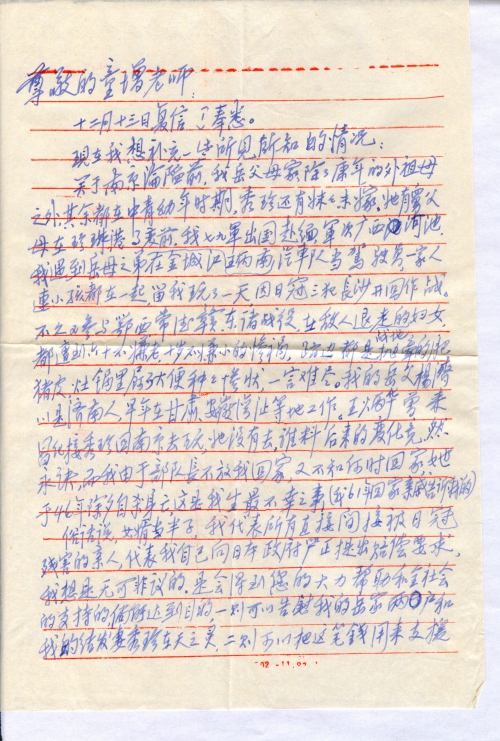 尊敬的童增老师:
十二月十三日复信了奉悉。
现在我想补充一些所见所知的情况:
关于南京沦陷前,我岳父母家除了康年的外祖母
之外,其余都在中青幼年时期,秀珍还有妹之未嫁,她有舅父
母在 前,我七九军出国赴缅,军次广西河池
我遇到岳母之弟在金城江西南汽车队当驾驶员,一家人
连小孩都在一起,留我玩了一天,因日寇三犯长沙,才回作战。
不久又参与鄂西常德赣东诸战役,在敌人退走的妇女,
都遭到六十不嫌老,十岁不嫌小的惨祸,路边都是战地的肥
猪皮,灶锅里屙了大便,种之惨状,一言难尽。我的岳父杨
以是济南人,早年在甘肃安徽等地工作。 曾来
接秀珍回南京去玩,她没有去,谁料后来的变化竟然
永诀,而我由于部队长不放我回家,又不知何时回家,她
于46年除夕自杀身亡,这是我生最不幸之事(我61年回家亲戚告诉我的)
俗话说,女婿当半子,我代表所有直接间接被日寇
残害的亲人,代表我自己向日本政府严正提出赔偿要求,
我想是无可非议的。是会得到您的大力帮助和全社会
的支持的,达到目的,一则可以告慰我的岳家两户和
我的结发妻秀珍在天之灵,二则可以把这笔钱用来支援
92-11.